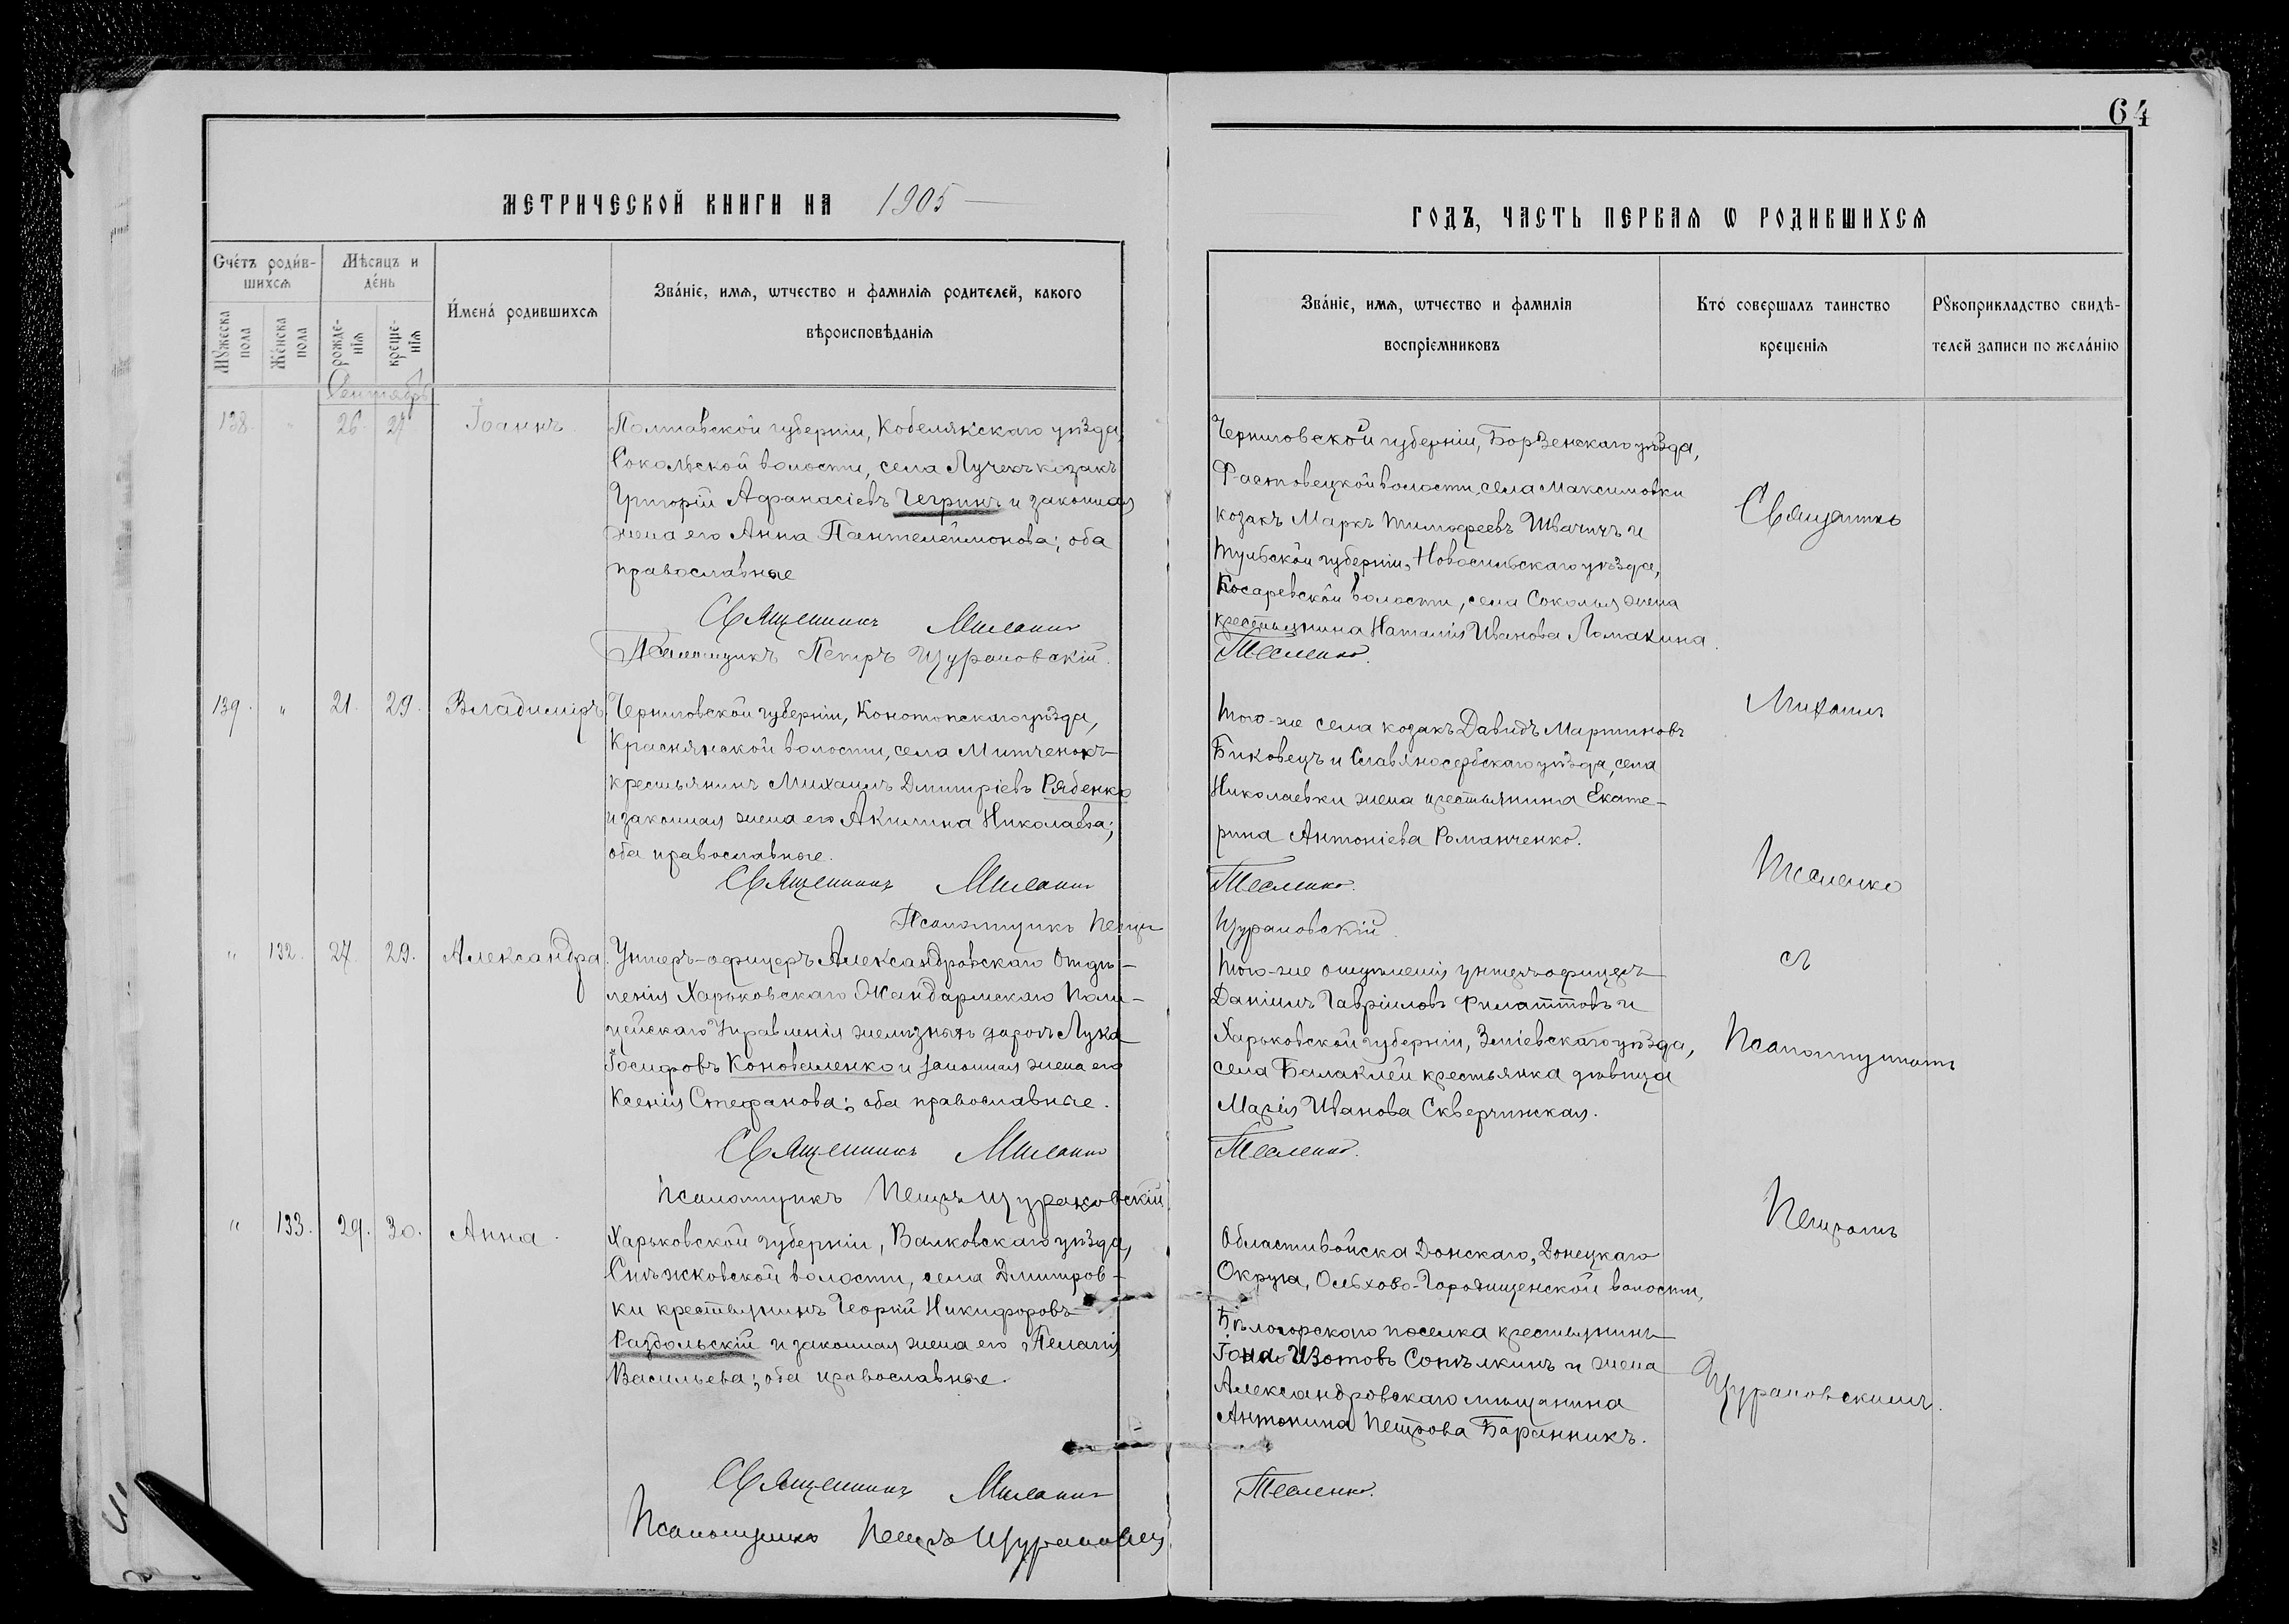 64
МЕТРИЧЕСКОЙ КНИГИ НА 1905
ГОДЪ, ЧАСТЬ ПЕРВАЯ Ѡ РОДИВШИХСЯ
Счéтъ родив-
шихся
Мѣсяцъ и
дéнь
Мꙋжеска пола
Женска пола
рожде-
нія
креще-
нія
И́менá родившихся
Звáніе, имя, ѡтчество и фамилія родителей, какого
вѣроисповѣданія
Звáніе, имя, ѡтчество и фамилія
воспріемниковъ
Ктó совершалъ таинство
крещенія
Рꙋкоприкладство свидѣ-
телей записи по желáнію
Сентябрь
138. " 26. 27 Іоаннъ
Полтавской губерніи, Кобелякскаго уѣзда,
Сокольской волости, села Лучекъ козакъ
Григорій Афанасіевъ Чегринъ и законная
жена его Анна Пантелеимонова; оба
православные
Священникъ Михаилъ
Псаломщикъ Петръ Щурановскій.
Черниговской губерніи, Борзенскаго уѣзда,
Фастовецкой волости, села Максимовки
козакъ Маркъ Тимофеевъ Швачичъ и
Тульской губерніи, Новосильскаго уѣзда,
Косаревской волости, села Соколья жена
крестьянина Наталія Иванова Ломакина.
Тесленко.
139. " 21. 29. Владиміръ.
Черниговской губерніи, Конотопскаго уѣзда,
Краснянской волости, села Митченокъ
крестьянинъ Михаилъ Дмитріевъ Рябенко
и законная жена его Акилина Николаева;
оба православные.
Священникъ Михаилъ
Псаломщикъ Петръ
Того-же села козакъ Давидъ Мартиновъ
Биковецъ и Славяносербскаго уѣзда, села
Николаевки жена крестьянина Екате-
рина Антоніева Романченко.
Тесленко.
Щурановскій
" 132. 27. 29. Александра.
Унтеръ-офицеръ Александровскаго Отдѣ-
ленія Харьковскаго Жандармскаго Поли-
цейскаго Управленія желѣзныхъ дорогъ Лука
Іосифовъ Коноваленко и законная жена его
Ксенія Стефанова; оба православные.
Священникъ Михаилъ
Псаломщикъ Петръ Щурановскій.
Того-же отдѣленія унтеръ-офицеръ
Даніилъ Гавріиловъ Филаттовъ и
Харьковской губерніи, Зміевскаго уѣзда,
села Балаклеи крестьянка дѣвица
Марія Иванова Скверчинская.
Тесленко.
" 133. 29. 30. Анна.
Харьковской губерніи, Валковскаго уѣзда,
Снѣжковской волости, села Дмитров-
ки крестьянинъ Георгій Никифоровъ
Раздольскій и законная жена его Пелагія
Васильева; оба православные.
Священникъ Михаилъ
Псаломщикъ Петръ Щурановскій
Области войска Донскаго, Донецкаго
Округа, Ольхово-Городищенской волости,
Бѣлогорскаго поселка крестьянинъ
Іона Изотовъ Сопѣлкинъ и жена
Александровскаго мѣщанина
Антонина Петрова Баранникъ.
Тесленко.
Священникъ
Михаилъ
Тесленко
съ
Псаломщикомъ
Петромъ
Щурановскимъ.